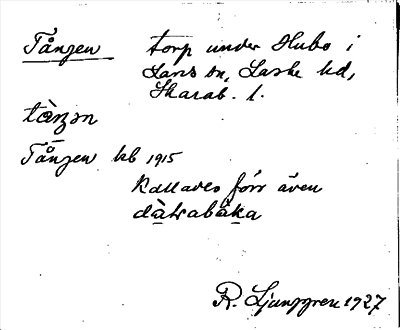 Tången torp under Hubo i
Lars sn, Laske hd,
Skarab. l.
tàŋən
Tången kb 1915
Kallades förr även
dàtrabáka
R. Ljunggren 1927